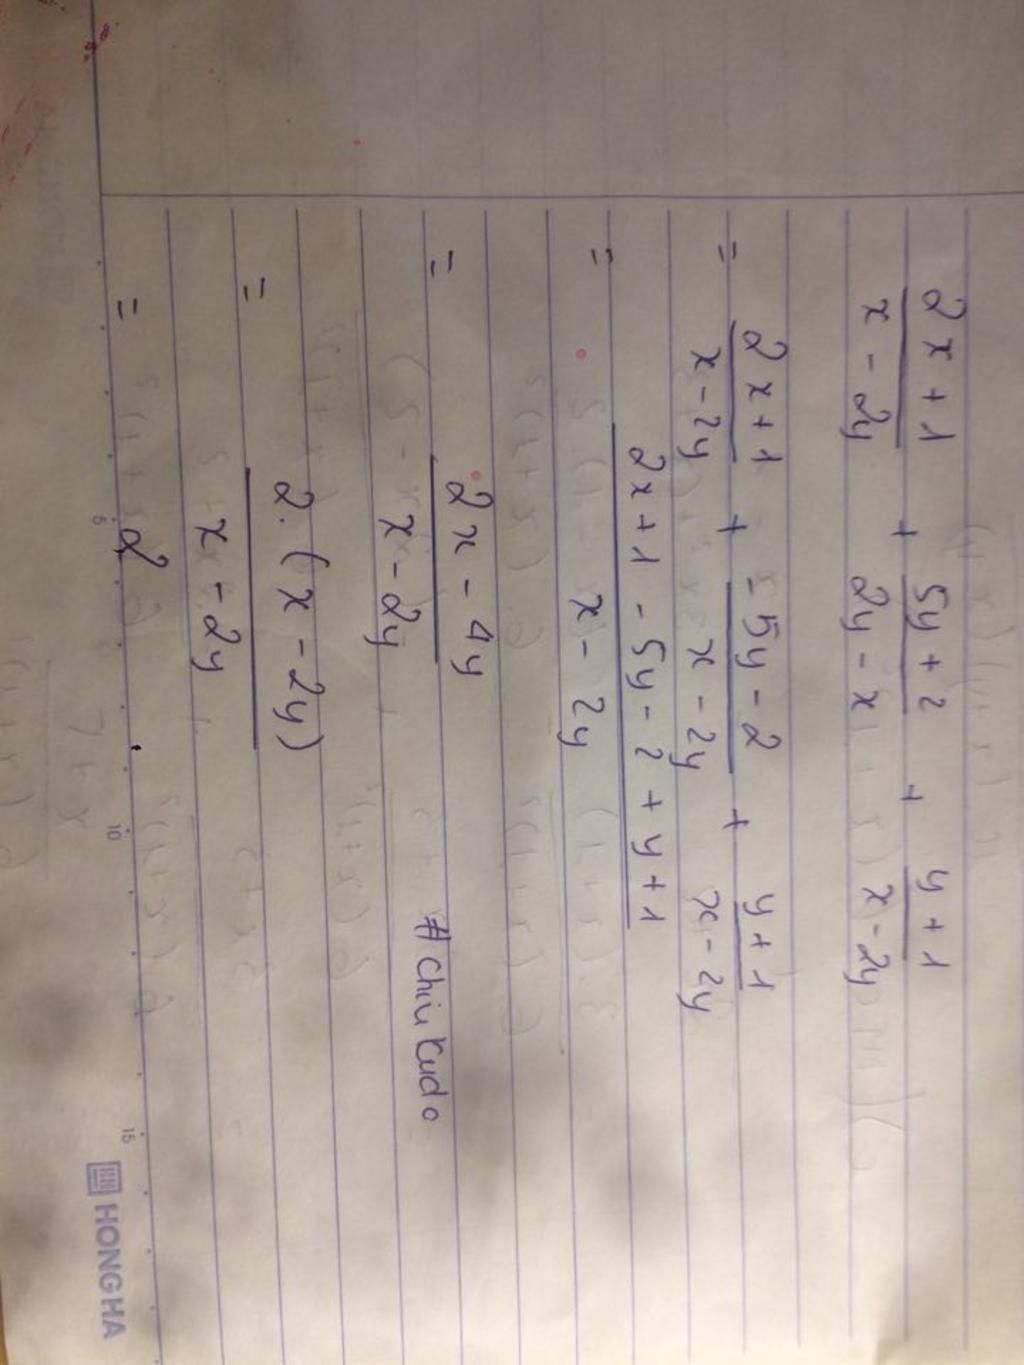 2x + 1 / x - 2y + 5y + 2 / 2y - x + y + 1 / x - 2y
= 2x + 1 / x - 2y + -5y - 2 / x - 2y + y + 1 / x - 2y
= 2x + 1 - 5y - 2 + y + 1 / x - 2y
= 2x - 4y / x - 2y
#chiu kudo
= 2. (x - 2y) / x - 2y
= 2
5 10 15
HONG HA